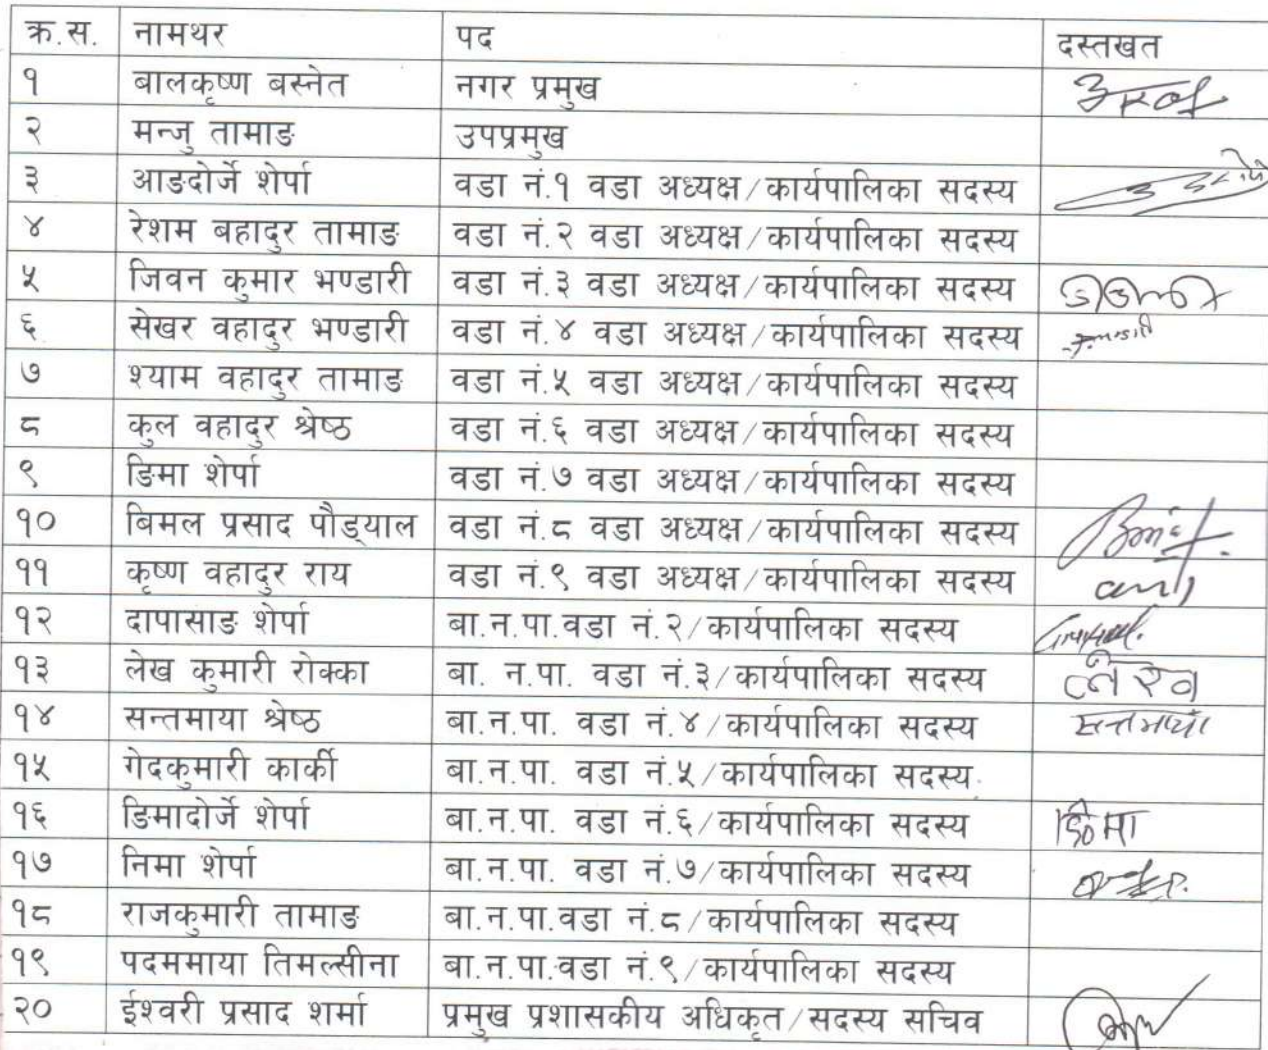 क्र.स. नामथर पद दस्तखत
१ बालकृष्ण बस्नेत नगर प्रमुख
२ मन्जु तामाङ उपप्रमुख
३ आङदोर्जे शेर्पा वडा नं.१ वडा अध्यक्ष/कार्यपालिका सदस्य
४ रेशम बहादुर तामाङ वडा नं.२ वडा अध्यक्ष/कार्यपालिका सदस्य
५ जिवन कुमार भण्डारी वडा नं.३ वडा अध्यक्ष/कार्यपालिका सदस्य
६ सेखर वहादुर भण्डारी वडा नं.४ वडा अध्यक्ष/कार्यपालिका सदस्य
७ श्याम वहादुर तामाङ वडा नं.५ वडा अध्यक्ष/कार्यपालिका सदस्य
८ कुल वहादुर श्रेष्ठ वडा नं.६ वडा अध्यक्ष/कार्यपालिका सदस्य
९ ङिमा शेर्पा वडा नं.७ वडा अध्यक्ष/कार्यपालिका सदस्य
१० बिमल प्रसाद पौड्याल वडा नं.८ वडा अध्यक्ष/कार्यपालिका सदस्य
११ कृष्ण वहादुर राय वडा नं.९ वडा अध्यक्ष/कार्यपालिका सदस्य
१२ दापासाङ शेर्पा बा.न.पा.वडा नं.२/कार्यपालिका सदस्य
१३ लेख कुमारी रोक्का बा. न.पा. वडा नं.३/कार्यपालिका सदस्य
१४ सन्तमाया श्रेष्ठ बा.न.पा. वडा नं.४/कार्यपालिका सदस्य सन्तमाया
१५ गेदकुमारी कार्की बा.न.पा. वडा नं.५/कार्यपालिका सदस्य
१६ ङिमादोर्जे शेर्पा बा.न.पा. वडा नं.६/कार्यपालिका सदस्य ङिमा
१७ निमा शेर्पा बा.न.पा. वडा नं.७/कार्यपालिका सदस्य
१८ राजकुमारी तामाङ बा.न.पा.वडा नं.८/कार्यपालिका सदस्य
१९ पदममाया तिमल्सीना बा.न.पा.वडा नं.९/कार्यपालिका सदस्य
२० ईश्वरी प्रसाद शर्मा प्रमुख प्रशासकीय अधिकृत/सदस्य सचिव